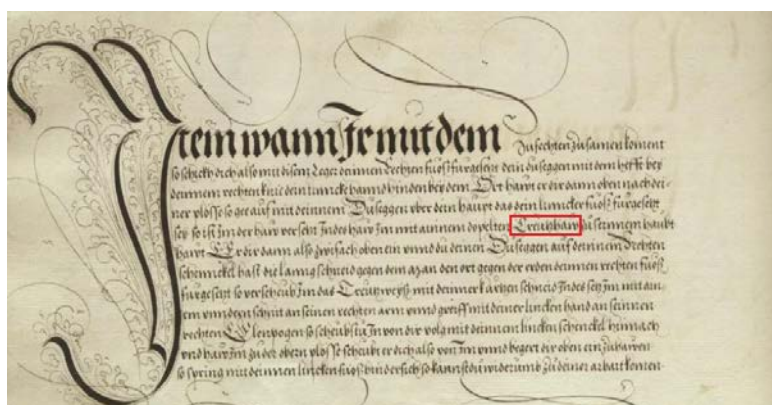 Item wann Ir mit dem Zufechten zusamen koment
so schickh dich also mit disem Leger deinnen rechten fuoß fürgesetzt dein duseggen mit dem hefft bey
deinnem rechten knie dein linncke hannd hinden bey dem Ort hawt er dir dann oben nach dei-
ner plösse so gee auf mit deinnem Duseggen vber dein haupt das dein linncker fuoß fürgesetzt
sey so ist Im der haw versetzt Indes haw Im mit ainnem dopelten Creutzhaw zu seinnem haubt
hawt Er dir dann also zwifach oben ein vnnd du deinen Duseggen auf deinnem Rechten
schennckel hast die lanng schneid gegen dem man den ort gegen der erden deinnen rechten fuoß
fürgesetzt so verscheub Im das Creutzweyß mit deinner kurtzen schneid Indes setz Im mit ain-
em vnndern schnit an seinen rechten arm vnnd greiff mit deinner lincken hand an seinnen
rechten Elenpogen so scheubstu In von dir volg mit deinnem lincken schenckel hinnach
vnd haw Im zu der obern plösse scheubt er dich also von Im vnnd begert dir oben ein zuhawen
so spring mit deinnen lincken fuoß hindersich so kannstu widerumb zu deiner arbait komen